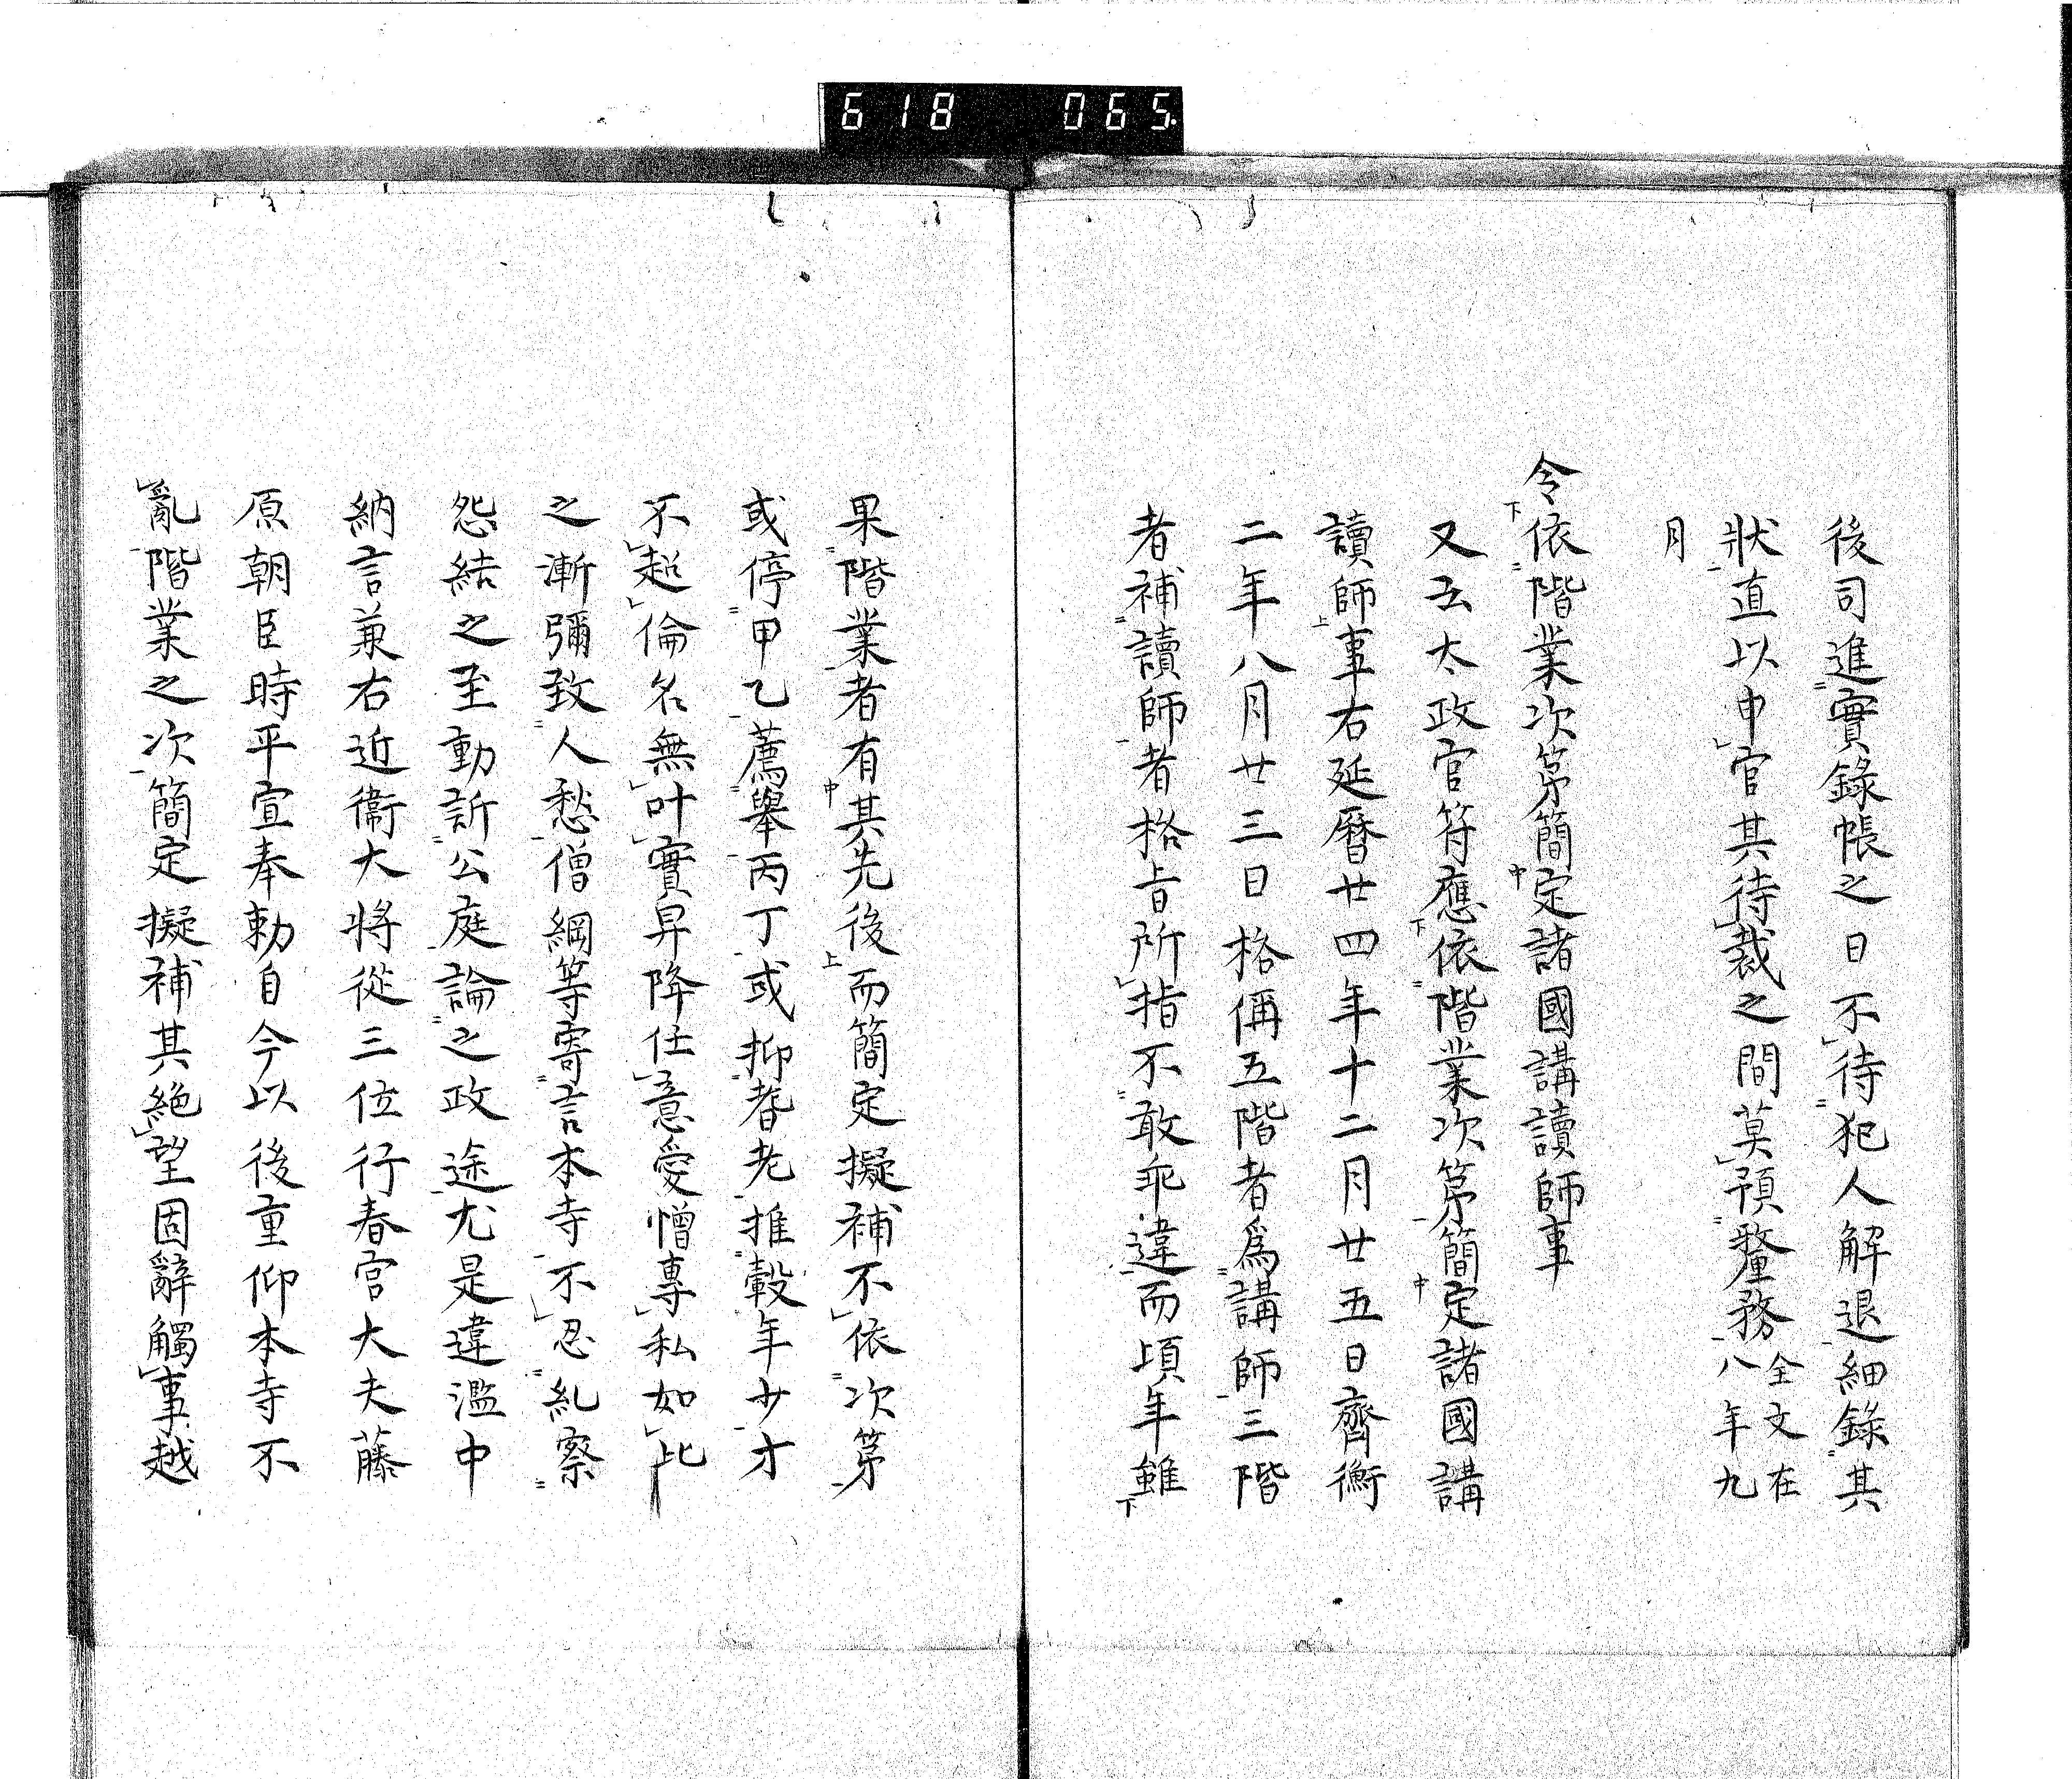 618 065
後司進實錄帳之日不待犯人解退細錄其
狀直以申官其待裁之間莫預釐務全文在八年九
月
令依階業次第簡定諸國講讀師事
又云太政官符應依階業次第簡定諸國講
讀師事右延曆廿四年十二月廿五日齊衡
二年八月廿三日格偁五階者爲講師三階
者補讀師者格旨所指不敢乖違而頃年雖
果階業者有其先後而簡定擬補不依次第
或停甲乙薦舉丙丁或抑耆老推轂年少才
不超倫名無叶實昇降任意愛憎專私如比
之漸彌致人愁僧綱等寄言本寺不忍糺察
怨結之至動訴公庭論之政途尤是違濫中
納言兼右近衞大將從三位行春宮大夫藤
原朝臣時平宣奉勅自今以後重仰本寺不
亂階業之次簡定擬補其絶望固辭觸事越